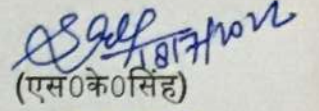 18/7/2022
(एस0के0सिंह)